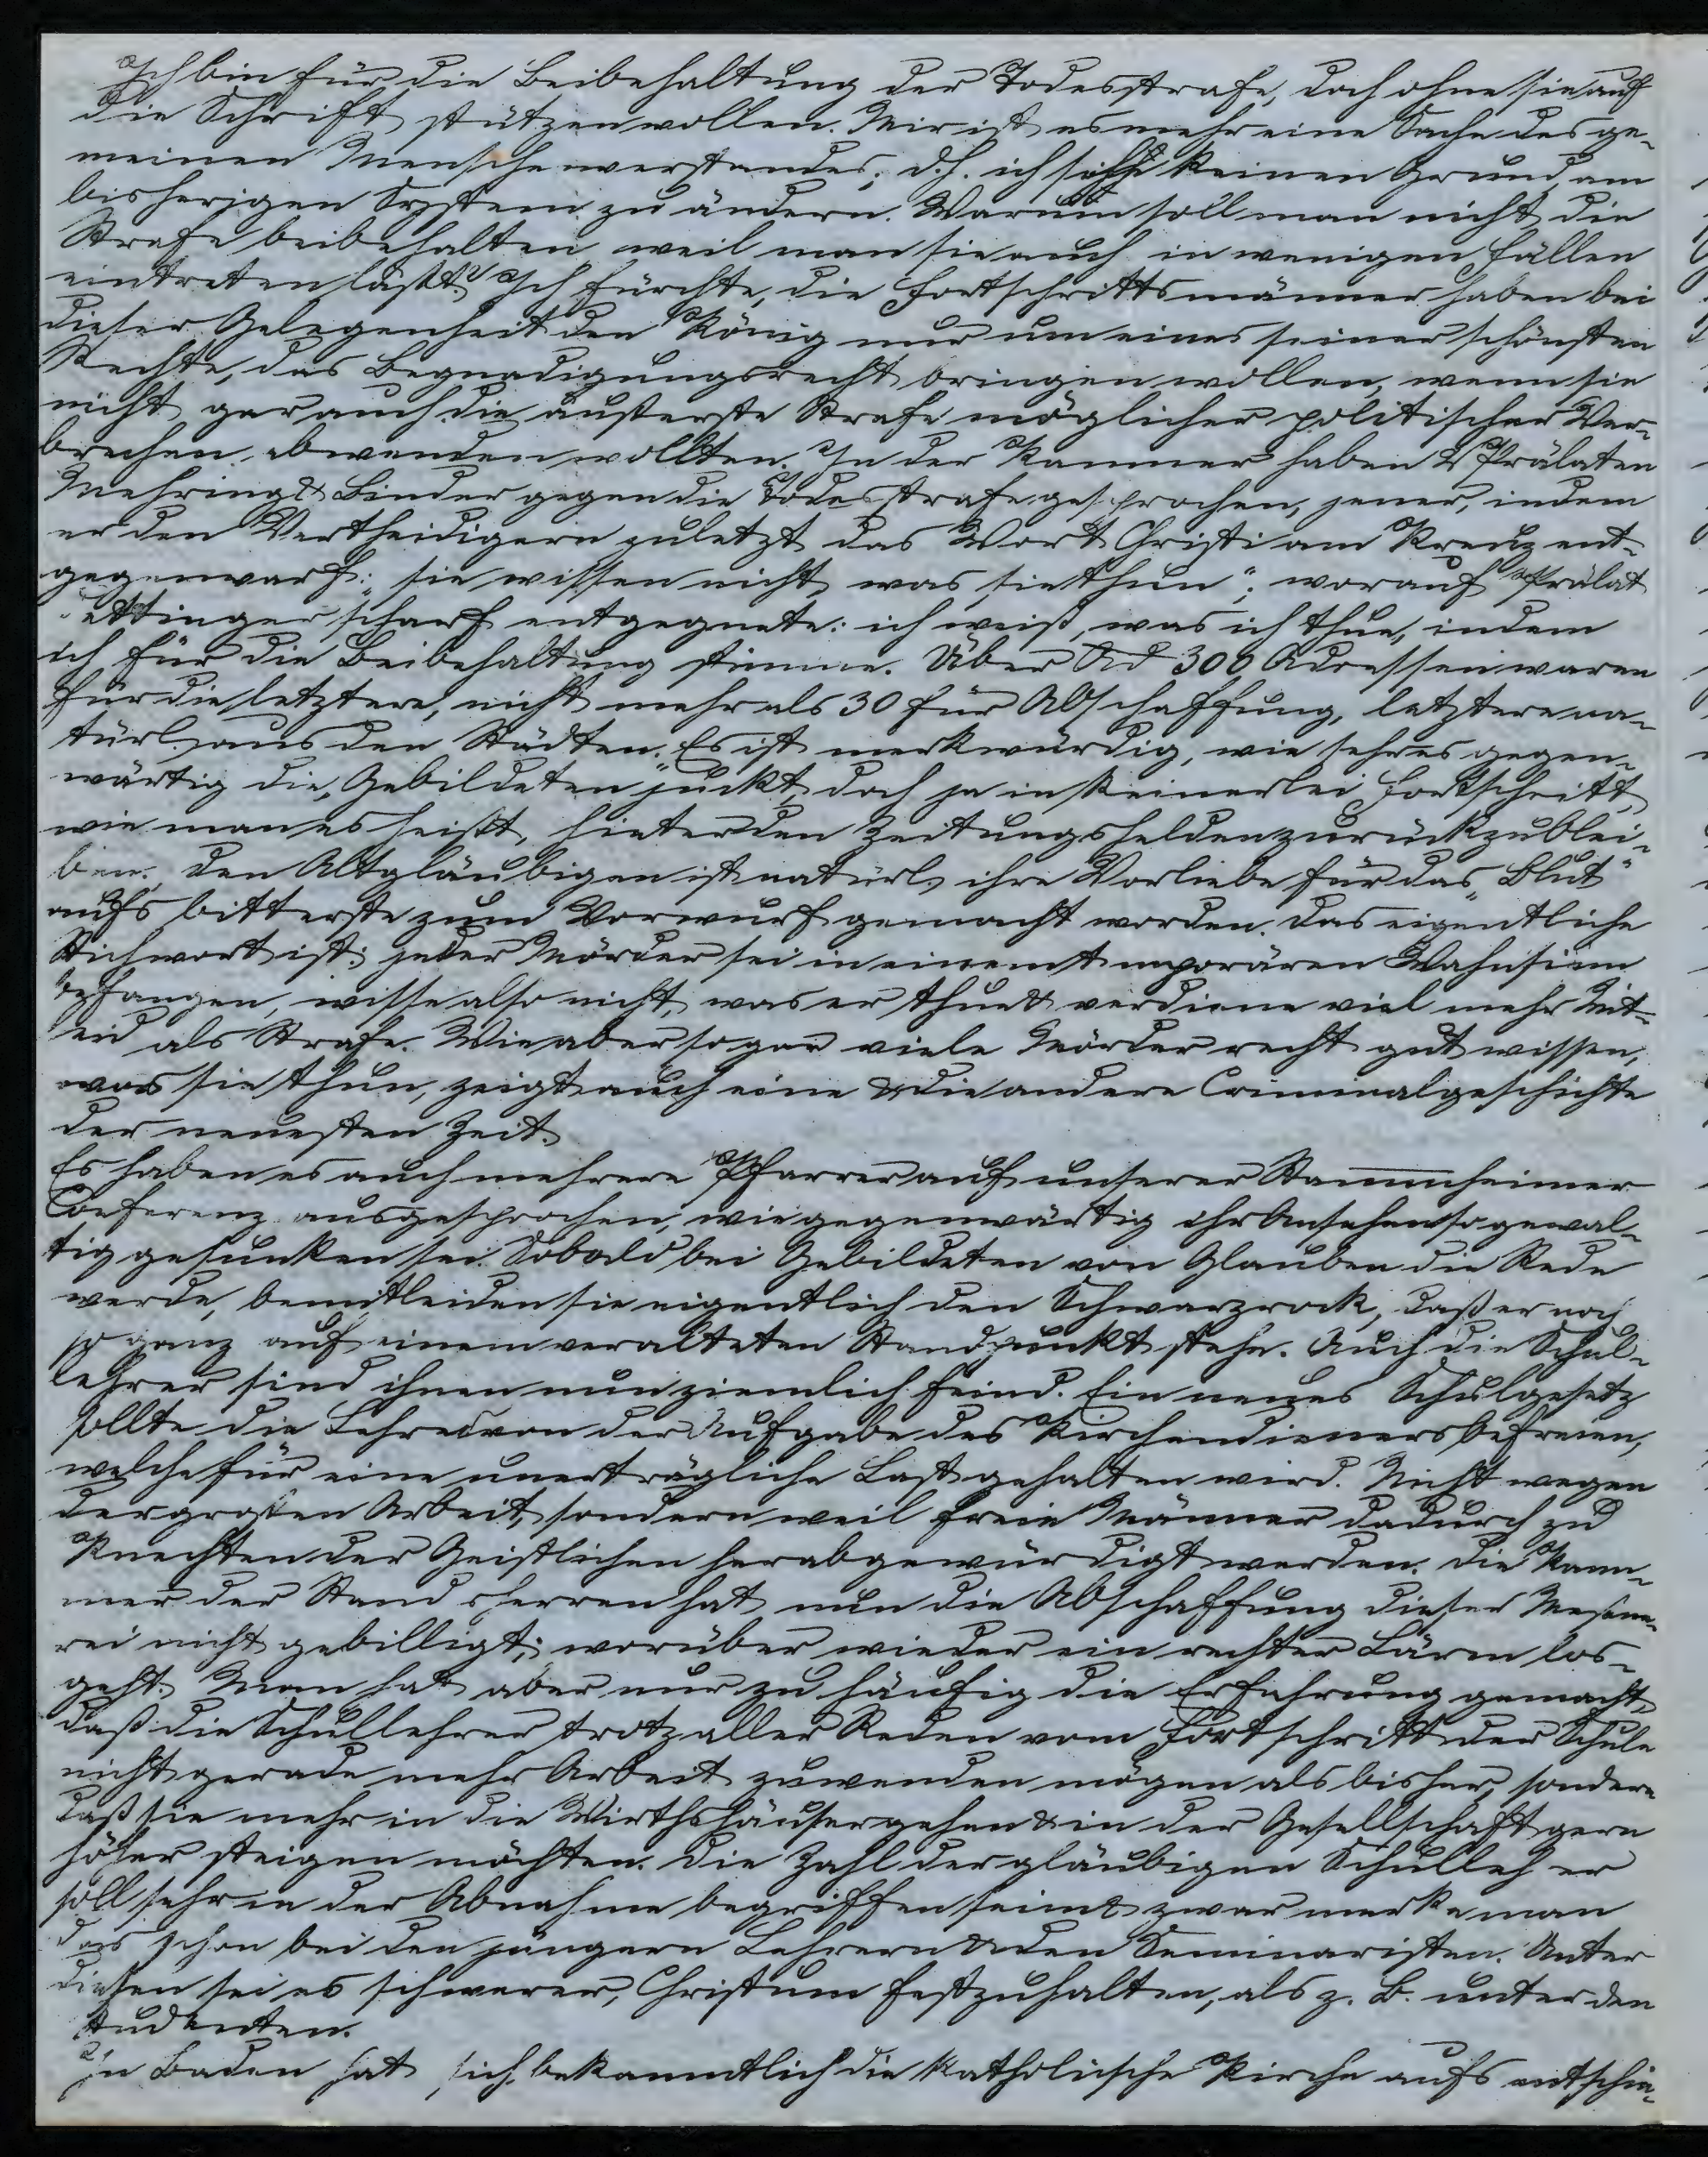 Ich bin für die Beibehaltung der Todesstrafe, doch ohne sie auf
die Schrift stützen wollen. Mir ist es mehr eine Sache des ge-
meinen Menschenverstandes; d.h. ich sehe keinen Grund, am
bisherigen System zu ändern. Warum soll man nicht die
Strafe beibehalten, weil man sie auch in wenigen Fällen
eintreten läßt? Ich fürchte, die Fortschrittsmänner haben bei
dieser Gelegenheit den König nur um eines seiner schönsten
Rechte, das Begnadigungsrecht bringen wollen, wenn sie
nicht gar auch die äußerste Strafe möglicher politischer Ver-
brechen abwenden wollten. In der Kammer haben 2 Prälaten
Mehring & Binder gegen die Todesstrafe gesprochen, jener, indem
er den Vertheidigern zuletzt das Wort Christi am Kreuz ent-
gegenwarf: „sie wissen nicht, was sie thun“; worauf Prälat
ettinger scharf entgegnete: ich weiß, was ich thue, indem
ich für die Beibehaltung stimme. Über 300 Adressen waren
für die letztere, nicht mehr als 30 für Abschaffung, letztere na-
türl. aus den Städten. Es ist merkwürdig, wie sehr es gegen-
wärtig die „Gebildeten“ juckt, doch ja in keinerlei Fortschritt,
wie man es heißt, hinter den Zeitungshelden zurückzublei-
ben. Den Altgläubigen ist natürl. ihre Vorliebe für das „Blut“
aufs bitterste zum Vorwurf gemacht worden. Das eigentliche
Stichwort ist: jeder Mörder sei in einem temporären Wahnsinn
befangen, wisse also nicht, was er thue & verdiene viel mehr Mit-
leid als Strafe. Wie aber sogar viele Mörder recht gut wissen,
was sie thun, zeigt auch eine & die andere Criminalgeschichte
der neuesten Zeit.
Es haben es auch mehrere Pfarrer auf unserer Stammheimer
Conferenz ausgesprochen, wie gegenwärtig ihr Ansehen so gewal-
tig gesunken sei. Sobald bei Gebildeten von Glauben die Rede
werde, bemitleiden sie eigentlich den Schwarzrock, daß er noch
so ganz auf einem veralteten Standpunkt stehe. Auch die Schul-
lehrer sind ihnen nun ziemlich feind. Ein neues Schulgesetz
sollte die Lehrer von der Aufgabe des Kirchendieners befreien,
welche für eine unerträgliche Last gehalten wird. Nicht wegen
der großen Arbeit, sondern weil freie Männer dadurch zu
Knechten der Geistlichen herabgewürdigt werden. Die Kam-
mer der Standsherren hat nun die Abschaffung dieser Meßne-
rei nicht gebilligt; worüber wieder ein rechter Lärm los-
geht. Man hat aber nur zu häufig die Erfahrung gemacht,
daß die Schullehrer trotz aller Reden vom Fortschritt der Schule
nicht gerade mehr Arbeit zuwenden mögen als bisher, sondern
daß sie mehr in die Wirthshäuser gehen & in der Gesellschaft gern
höher steigen möchten. Die Zahl der gläubigen Schullehrer
soll sehr in der Abnahme begriffen sein & zwar merke man
das schon bei den jüngern Lehrern & den Seminaristen. Unter
diesen sei es schwerer, Christum festzuhalten, als z. B. unter den
Studenten.
In Baden hat sich bekanntlich die katholische Kirche aufs entschie-